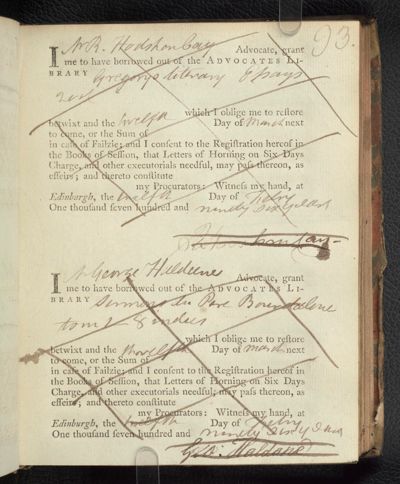 93.
I Mr R. Hodshon Cay Advocate, grant
me to have borrowed out of the ADVOCATES LI-
BRARY Gregorys literary Essays
which I oblige me to reſtore
betwixt and the twelfth Day of March next
to come, or the Sum of
in caſe of Failzie; and I conſent to the Regiſtration hereof in
the Books of Seſſion, that Letters of Horning on Six Days
Charge, and other executorials needful, may paſs thereon, as
effeirs; and thereto conſtitute
my Procurators: Witneſs my hand, at
Edinburgh, the twelfth Day of Febry
One thouſand ſeven hundred and ninety six years
R Hodshon Cay
I George Haldane Advocate, grant
me to have borrowed out of the ADVOCATES LI-
BRARY Sermons du Pere Bourdaloue
tom
which I oblige me to reſtore
betwixt and the twelfth Day of March next
to come, or the Sum of
in caſe of Failzie; and I conſent to the Regiſtration hereof in
the Books of Seſſion, that Letters of Horning on Six Days
Charge, and other executorials needful, may paſs thereon, as
effeirs; and thereto conſtitute
my Procurators: Witneſs my hand, at
Edinburgh, the twelfth Day of Febry
One thouſand ſeven hundred and ninety six
Geo: Haldane